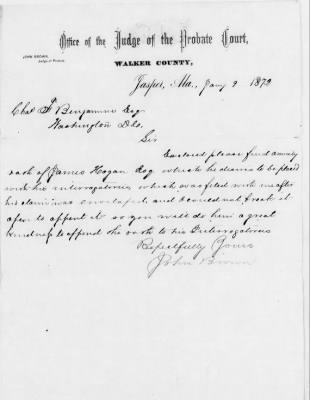 JOHN BROWN,
Judge of Probate.
Office of the Judge of the Probate Court,
WALKER COUNTY,
Jasper, Ala., Jany 9 1873
Chas F Benjamine Esq
Washington D.C.
Sir
Enclosed please find
oath of James Hogan Esq which he desires to be placed
with his interrogatories which was filed with me after
his claim was enveloped, and I could not break it
open to append it so you will do him a great
kindness to append the oath to his Interrogatories
Respectfully Yours
John Brown